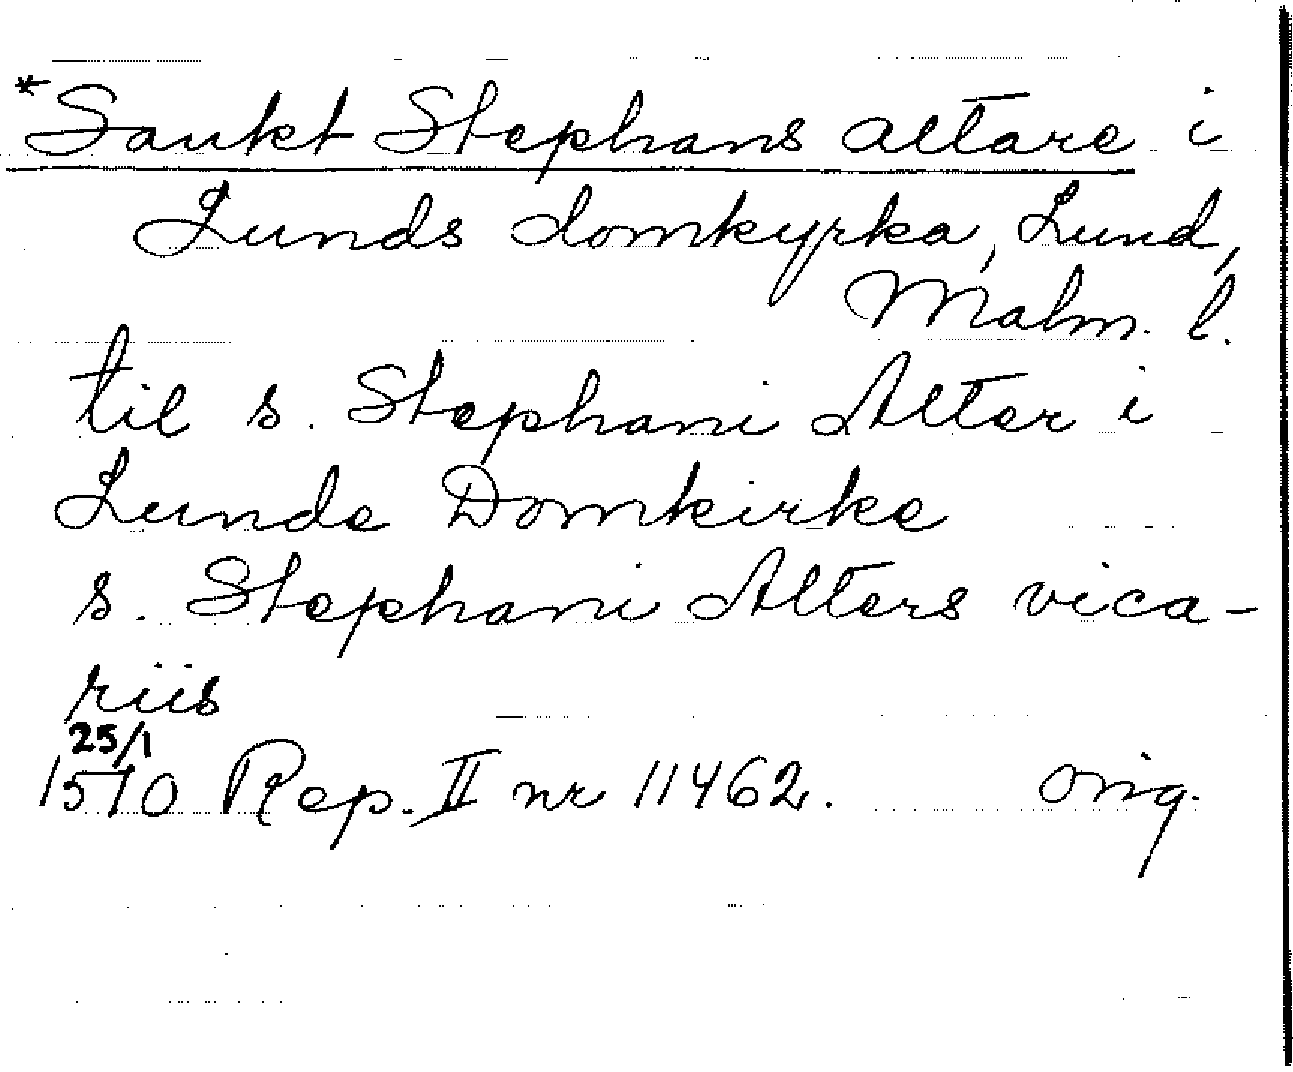 *Sankt Stephans altare i
Lunds domkyrka, Lund,
Malm. l.
til s. Stephani Alter i
Lunde Domkirke
s. Stephani Alters vica-
riis
25/1
1510 Rep. II nr 11462. orig.